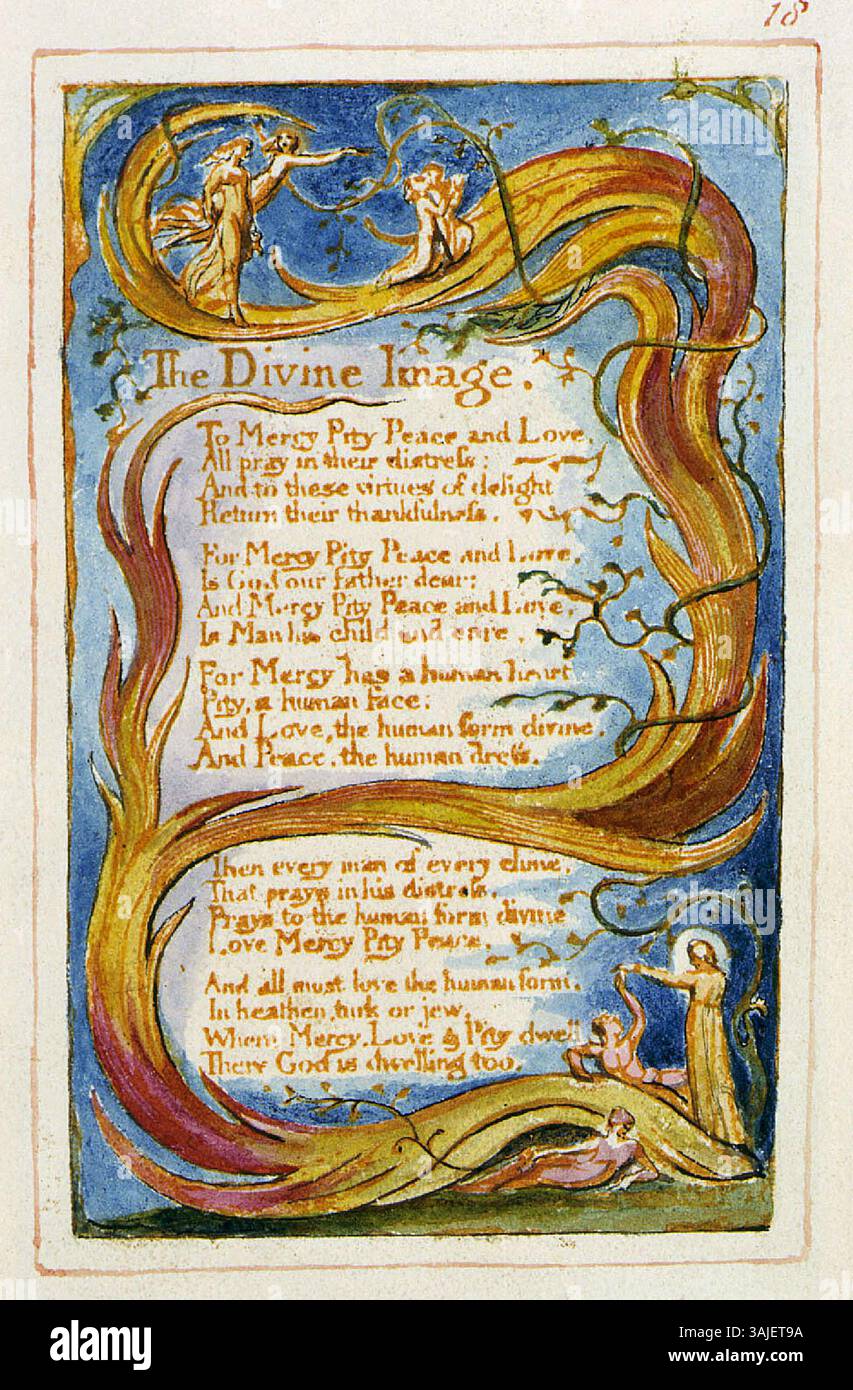 18
The Divine Image.
To Mercy Pity Peace and Love,
All pray in their distress:
And to these virtues of delight
Return their thankfulness.
For Mercy Pity Peace and Love,
Is God our father dear:
And Mercy Pity Peace and Love,
Is Man his child and care.
For Mercy has a human heart
Pity, a human face:
And Love, the human form divine,
And Peace, the human dress.
Then every man of every clime,
That prays in his distress,
Prays to the human form divine
Love Mercy Pity Peace.
And all must love the human form,
In heathen, turk or jew,
Where Mercy, Love & Pity dwell
There God is dwelling too.
alamy
Image ID: 3AJET9A
www.alamy.com